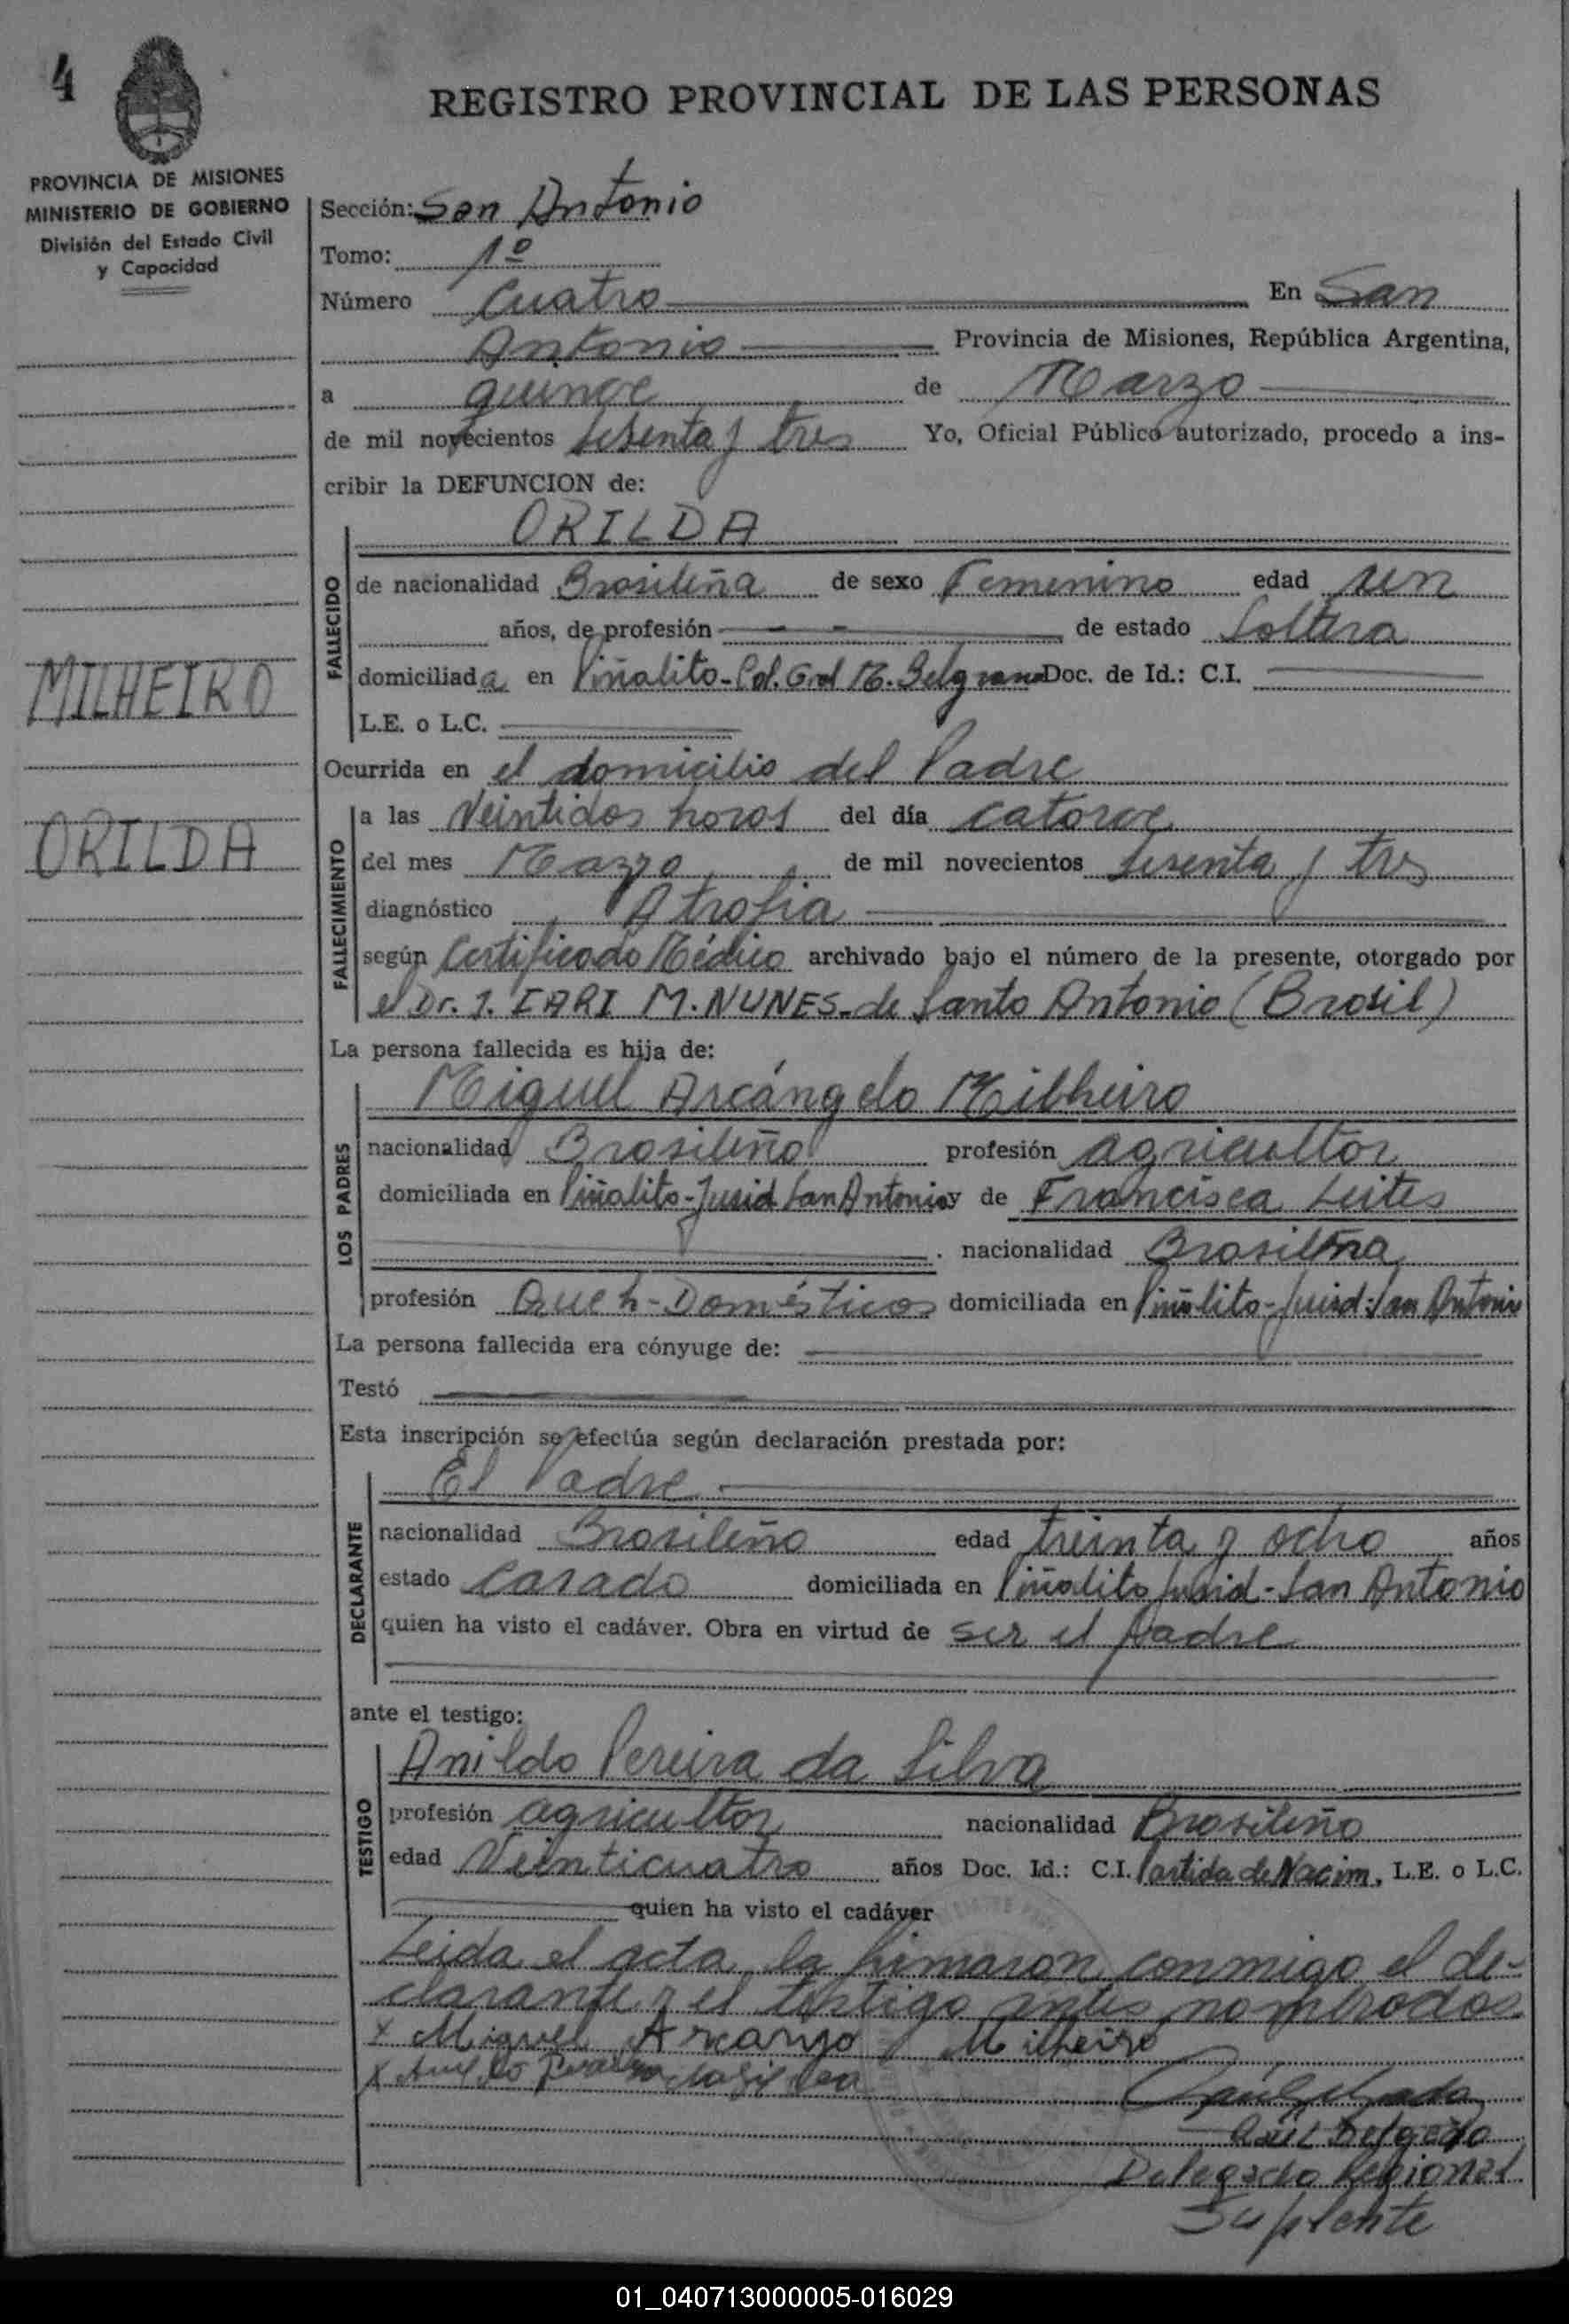 4
REGISTRO PROVINCIAL DE LAS PERSONAS
PROVINCIA DE MISIONES
MINISTERIO DE GOBIERNO
División del Estado Civil
y Capacidad
MILHEIRO
ORILDA
Sección: San Antonio
Tomo: 1º
Número Cuatro En San
Antonio Provincia de Misiones, República Argentina,
a quince de Marzo
de mil novecientos sesenta y tres Yo, Oficial Público autorizado, procedo a ins-
cribir la DEFUNCION de:
ORILDA
FALLECIDO
de nacionalidad Brasileña de sexo Femenino edad un
años, de profesión - - de estado Soltera
domiciliada en Piñalito-Col. Gral M. Belgrano Doc. de Id.: C.I.
L.E. o L.C.
Ocurrida en el domicilio del Padre
FALLECIMIENTO
a las Veintidos horas del día catorce
del mes Marzo de mil novecientos sesenta y tres
diagnóstico Atrofia
según Certificado Médico archivado bajo el número de la presente, otorgado por
el Dr. J. IARI M. NUNES-de Santo Antonio (Brasil)
La persona fallecida es hija de:
LOS PADRES
Miguel Arcángelo Milheiro
nacionalidad Brasileño profesión agricultor
domiciliada en Piñalito-Jurid San Antonio y de Francisca Leites
. nacionalidad Brasileña
profesión Queh-Domésticos domiciliada en Piñalito-Jurid: San Antonio
La persona fallecida era cónyuge de:
Testó
Esta inscripción se efectúa según declaración prestada por:
El Padre
DECLARANTE
nacionalidad Brasileño edad treinta y ocho años
estado Casado domiciliada en Piñalito Jurid-San Antonio
quien ha visto el cadáver. Obra en virtud de ser el padre
ante el testigo:
TESTIGO
Anildo Pereira da Silva
profesión agricultor nacionalidad Brasileño
edad Veinticuatro años Doc. Id.: C.I. Partida de Nacim, L.E. o L.C.
quien ha visto el cadáver
Leida el acta, la firmaron conmigo el de-
clarante y el testigo antes nombrados
x Miguel Arcanjo Milheiro
x Anildo Pereira da Silva
Raúl Delgado
Delegado Regional
Suplente
01_040713000005-016029